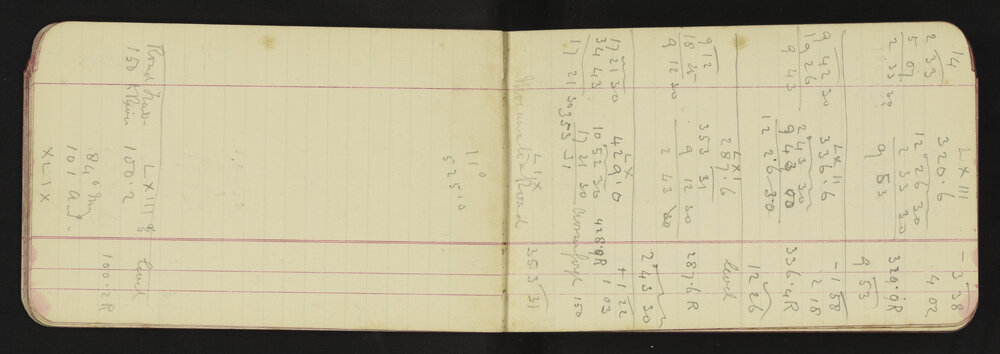 14 LXIII - 3 38
2 33 320.6 4 02
5 07 12 26 30
2 33 30 2 33 30 320.0R
9 53 9 53
9 42 30 LXII - 1 58
19 26 336.6 2 18
9 43 2 43 30 336.4R
9 43 00
12 26 30 12 26
LXI level
287.6
9 12 353 31
18 25 9 12 30 287.6R
9 12 30 2 43 30
2 43 30
LX + 1 22
17 21 30 429.0 1 03
34 43 10 52 30 428.9R
17 21 30 17 21 30 150
353 31
LIX
Road 353 31
11°
525.0
Road LXIII level
150 100.2 100.2R
84°
101
XLIX